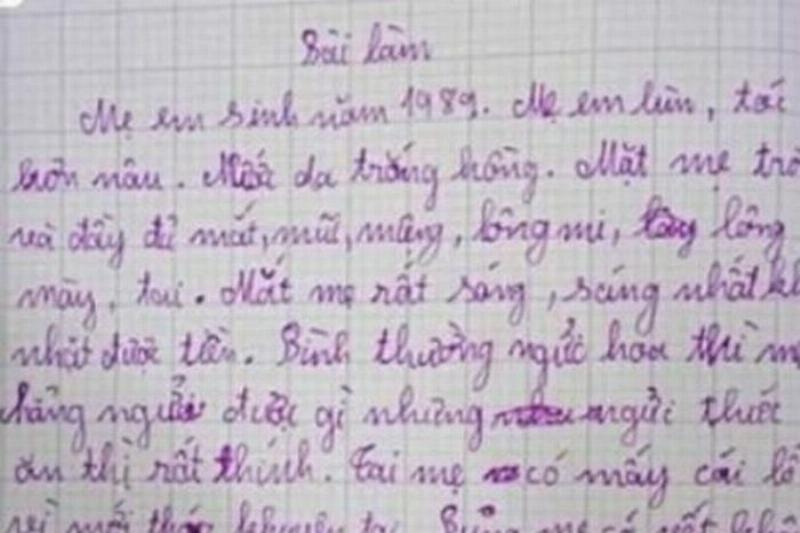 Bài làm
Mẹ em sinh năm 1989. Mẹ em lùn, tóc
hơn nâu. Một da trắng hồng. Mặt mẹ trò
và đầy đủ mắt, mũi, miệng, lông mi, lông
mày, tai. Mắt mẹ rất sáng, sáng nhất kh
nhặt được tiền. Bình thường ngửi hoa thì mẹ
chẳng ngửi được gì nhưng ngửi thức
ăn thì rất thính. Tai mẹ có mấy cái lỗ
vì mới tháo khuyên tai. Bụng mẹ có rất